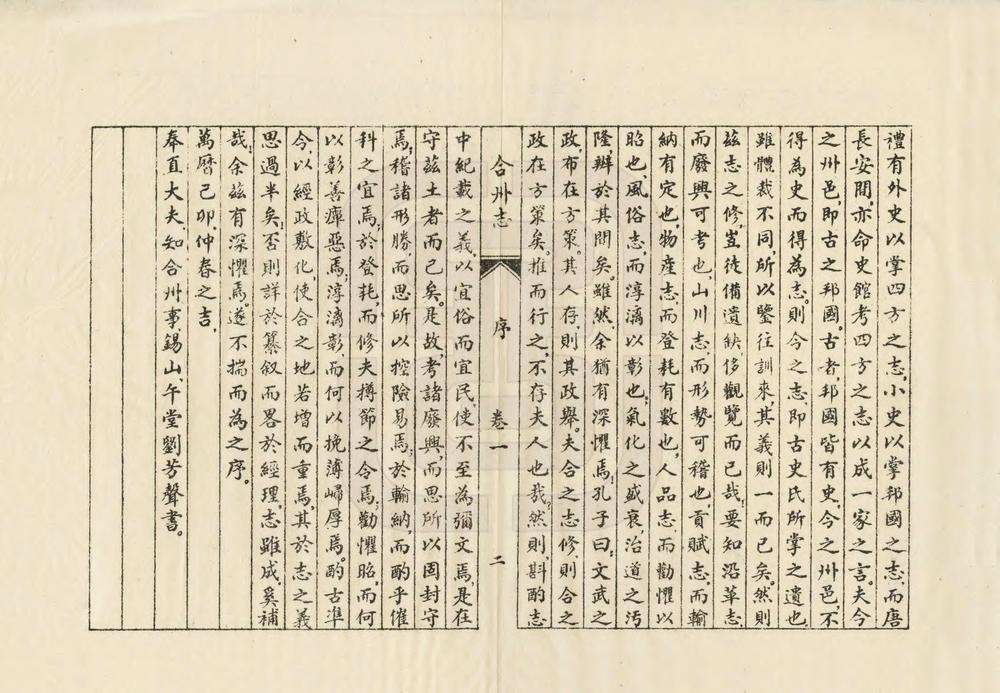 禮有外史以掌四方之志,小史以掌邦國之志,而唐
長安間,亦命史館考四方之志以成一家之言。夫今
之州邑,即古之邦國。古者邦國皆有史,今之州邑,不
得為史而得為志。則今之志,即古史氏所掌之遺也,
雖體裁不同,所以鑒往訓來,其義則一而已矣。然則
茲志之修,豈徒備遺缺,侈觀覽而已哉,要知沿革志
而廢興可考也,山川志而形勢可稽也,貢賦志,而輸
納有定也,物產志,而登耗有數也,人品志,而勸懼以
昭也,風俗志,而淳漓以彰也,氣化之盛衰,治道之污
隆,辨於其間矣。雖然,余猶有深懼焉,孔子曰:文武之
政,布在方策。其人存,則其政舉。夫合之志修,則合之
政在方策矣。推而行之,不存夫人也哉。然則,斟酌志
合州志 序 卷一 二
中紀載之義,以宜俗而宜民,使不至為彌文焉,是在
守茲土者而已矣。是故,考諸廢興,而思所以固封守
焉,稽諸形勝,而思所以控險易焉,於輸納,而酌乎催
科之宜焉,於登耗,而修夫撙節之令焉,勸懼昭,而何
以彰善癉惡焉,淳漓彰,而何以挽薄歸厚焉。酌古準
今,以經政敷化,使合之地若增而重焉,其於志之義
思過半矣,否則詳於纂叙而畧於經理,志雖成,奚補
哉,余茲有深懼焉。遂不揣而為之序。
萬曆己卯,仲春之吉,
奉直大夫,知合州事,錫山,午堂劉芳聲書。